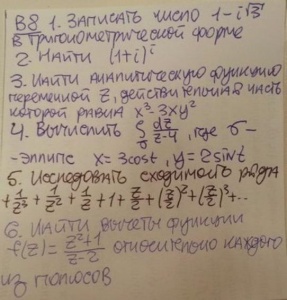 В8 1. Записать число 1-i√3
в тригонометрической форме
2. Найти (1+i)^i
3. Найти аналитическую функцию
переменной z, действительная часть
которой равна x³-3xy²
4. Вычислить ∫_σ dz/(z-4), где σ-
-эллипс x=3cost, y=2sint
5. Исследовать сходимость ряда
+1/z³+1/z²+1/z+1+z/2+(z/2)²+(z/2)³+..
6. Найти вычеты функции
f(z)=(z²+1)/(z-2) относительно каждого
из полюсов